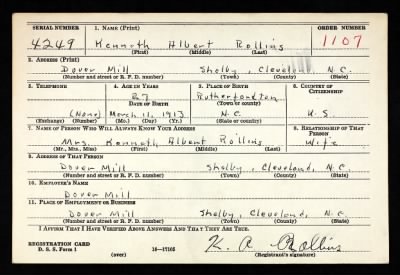 SERIAL NUMBER 1. NAME (Print) ORDER NUMBER
4249 Kenneth Albert Rollins 1107
(First) (Middle) (Last)
2. ADDRESS (Print)
Dover Mill Shelby, Cleveland, N.C.
(Number and street or R. F. D. number) (Town) (County) (State)
3. TELEPHONE 4. AGE IN YEARS 5. PLACE OF BIRTH 6. COUNTRY OF CITIZENSHIP
27 Rutherfordton
DATE OF BIRTH (Town or county)
(None) March 11, 1913 N.C. U.S.
(Exchange) (Number) (Mo.) (Day) (Yr.) (State or country)
7. NAME OF PERSON WHO WILL ALWAYS KNOW YOUR ADDRESS 8. RELATIONSHIP OF THAT PERSON
Mrs. Kenneth Albert Rollins Wife
(Mr., Mrs., Miss) (First) (Middle) (Last)
9. ADDRESS OF THAT PERSON
Dover Mill Shelby, Cleveland, N.C.
(Number and street or R. F. D. number) (Town) (County) (State)
10. EMPLOYER'S NAME
Dover Mill
11. PLACE OF EMPLOYMENT OR BUSINESS
Dover Mill Shelby, Cleveland, N.C.
(Number and street or R. F. D. number) (Town) (County) (State)
I AFFIRM THAT I HAVE VERIFIED ABOVE ANSWERS AND THAT THEY ARE TRUE.
REGISTRATION CARD
D. S. S. Form 1 16—17105 K. A. Rollins
(over) (Registrant's signature)